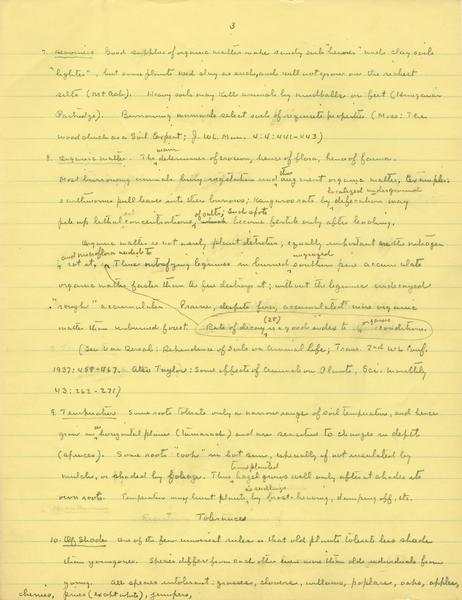 3
7. Good supplies of organic matter make sandy soils "heavier" and clay soils
"lighter", but some plants need clay as such, and will not grow on the richest
silts (Mt Ash). Heavy soils may kill animals by mudballs on feet (Hungarian
Partridge). Burrowing animals select soils of requisite properties (Moss: The
woodchuck as a Soil Expert; J. Wl. Man. 4:4:441-443)
8. Organic matter. The main determiner of erosion, hence of flora, hence of fauna.
Most burrowing animals bury vegetation and thus augment organic matter, example:
earthworms pull leaves into their burrows; Kangaroo rats by localized underground defecation may
pile up lethal concentrations of salts, such spots become fertile only after leaching.
Organic matter is not merely plant detritus; equally important is the nitrogen
and microflora needed to rot it. Thus nitrifying legumes in burned southern pine accumulate
organic matter faster than the fire destroys it; without the legumes
"rough" accumulates. Prairie, despite fires, accumulated more organic
matter than unburned forest. Rate of decay (28) is a good index to organic conditions.
(See Van Dersal: Dependence of Soils on Animal Life; Trans. 2nd Wl Conf.
1937: 458-467. Also Taylor: Some effects of animals on Plants, Sci. Monthly
43: 262-271)
9. Temperature Some roots tolerate only a narrow range of soil temperature, and hence
grow in horizontal planes (tamarack) and are sensitive to changes in depth
(spruces). Some roots "cook" in hot sun, especially if not insulated by
mulch, or shaded by foliage. Thus transplanted hazel grows well only after it shades its
own roots. Temperature may hurt plants by frost-heaving, damping off, etc.
Tolerances
10. Of Shade One of the few universal rules is that old plants tolerate less shade
than young ones. Species differ from each other even more than old individuals from
young. All species intolerant: grasses, clovers, willows, poplars, oaks, apples,
cherries, pines (except white), junipers,